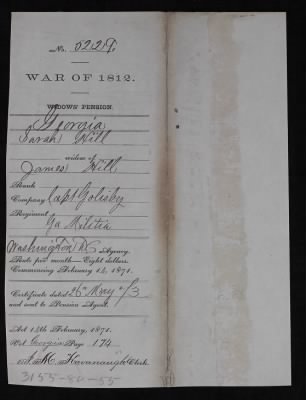 No. 5229.
WAR OF 1812.
WIDOWS' PENSION.
Georgia
Sarah Hill
widow of
James Hill
Rank
Company Capt Golisby
Regiment Ga Militia
Washington DC Agency
Rate per month—Eight dollars.
Commencing February 14, 1871.
Certificate dated 26" May 73
and sent to Pension Agent.
Act 14th February, 1871.
Vol. Georgia Page 174
M. Kavanaugh Clerk.
3155-80-55